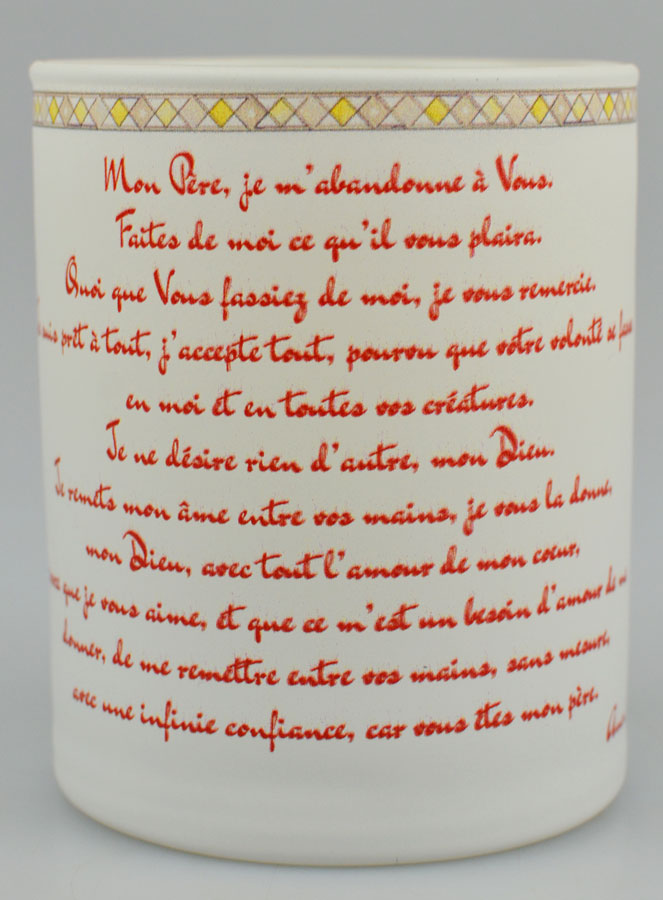 Mon Père, je m'abandonne à Vous.
Faites de moi ce qu'il vous plaira.
Quoi que Vous fassiez de moi, je vous remercie.
suis prêt à tout, j'accepte tout, pourvu que votre volonté se
en moi et en toutes vos créatures.
Je ne désire rien d'autre, mon Dieu.
Je remets mon âme entre vos mains, je vous la donne,
mon Dieu, avec tout l'amour de mon coeur,
que je vous aime, et que ce m'est un besoin d'amour de
donner, de me remettre entre vos mains, sans mesure,
avec une infinie confiance, car vous êtes mon père.